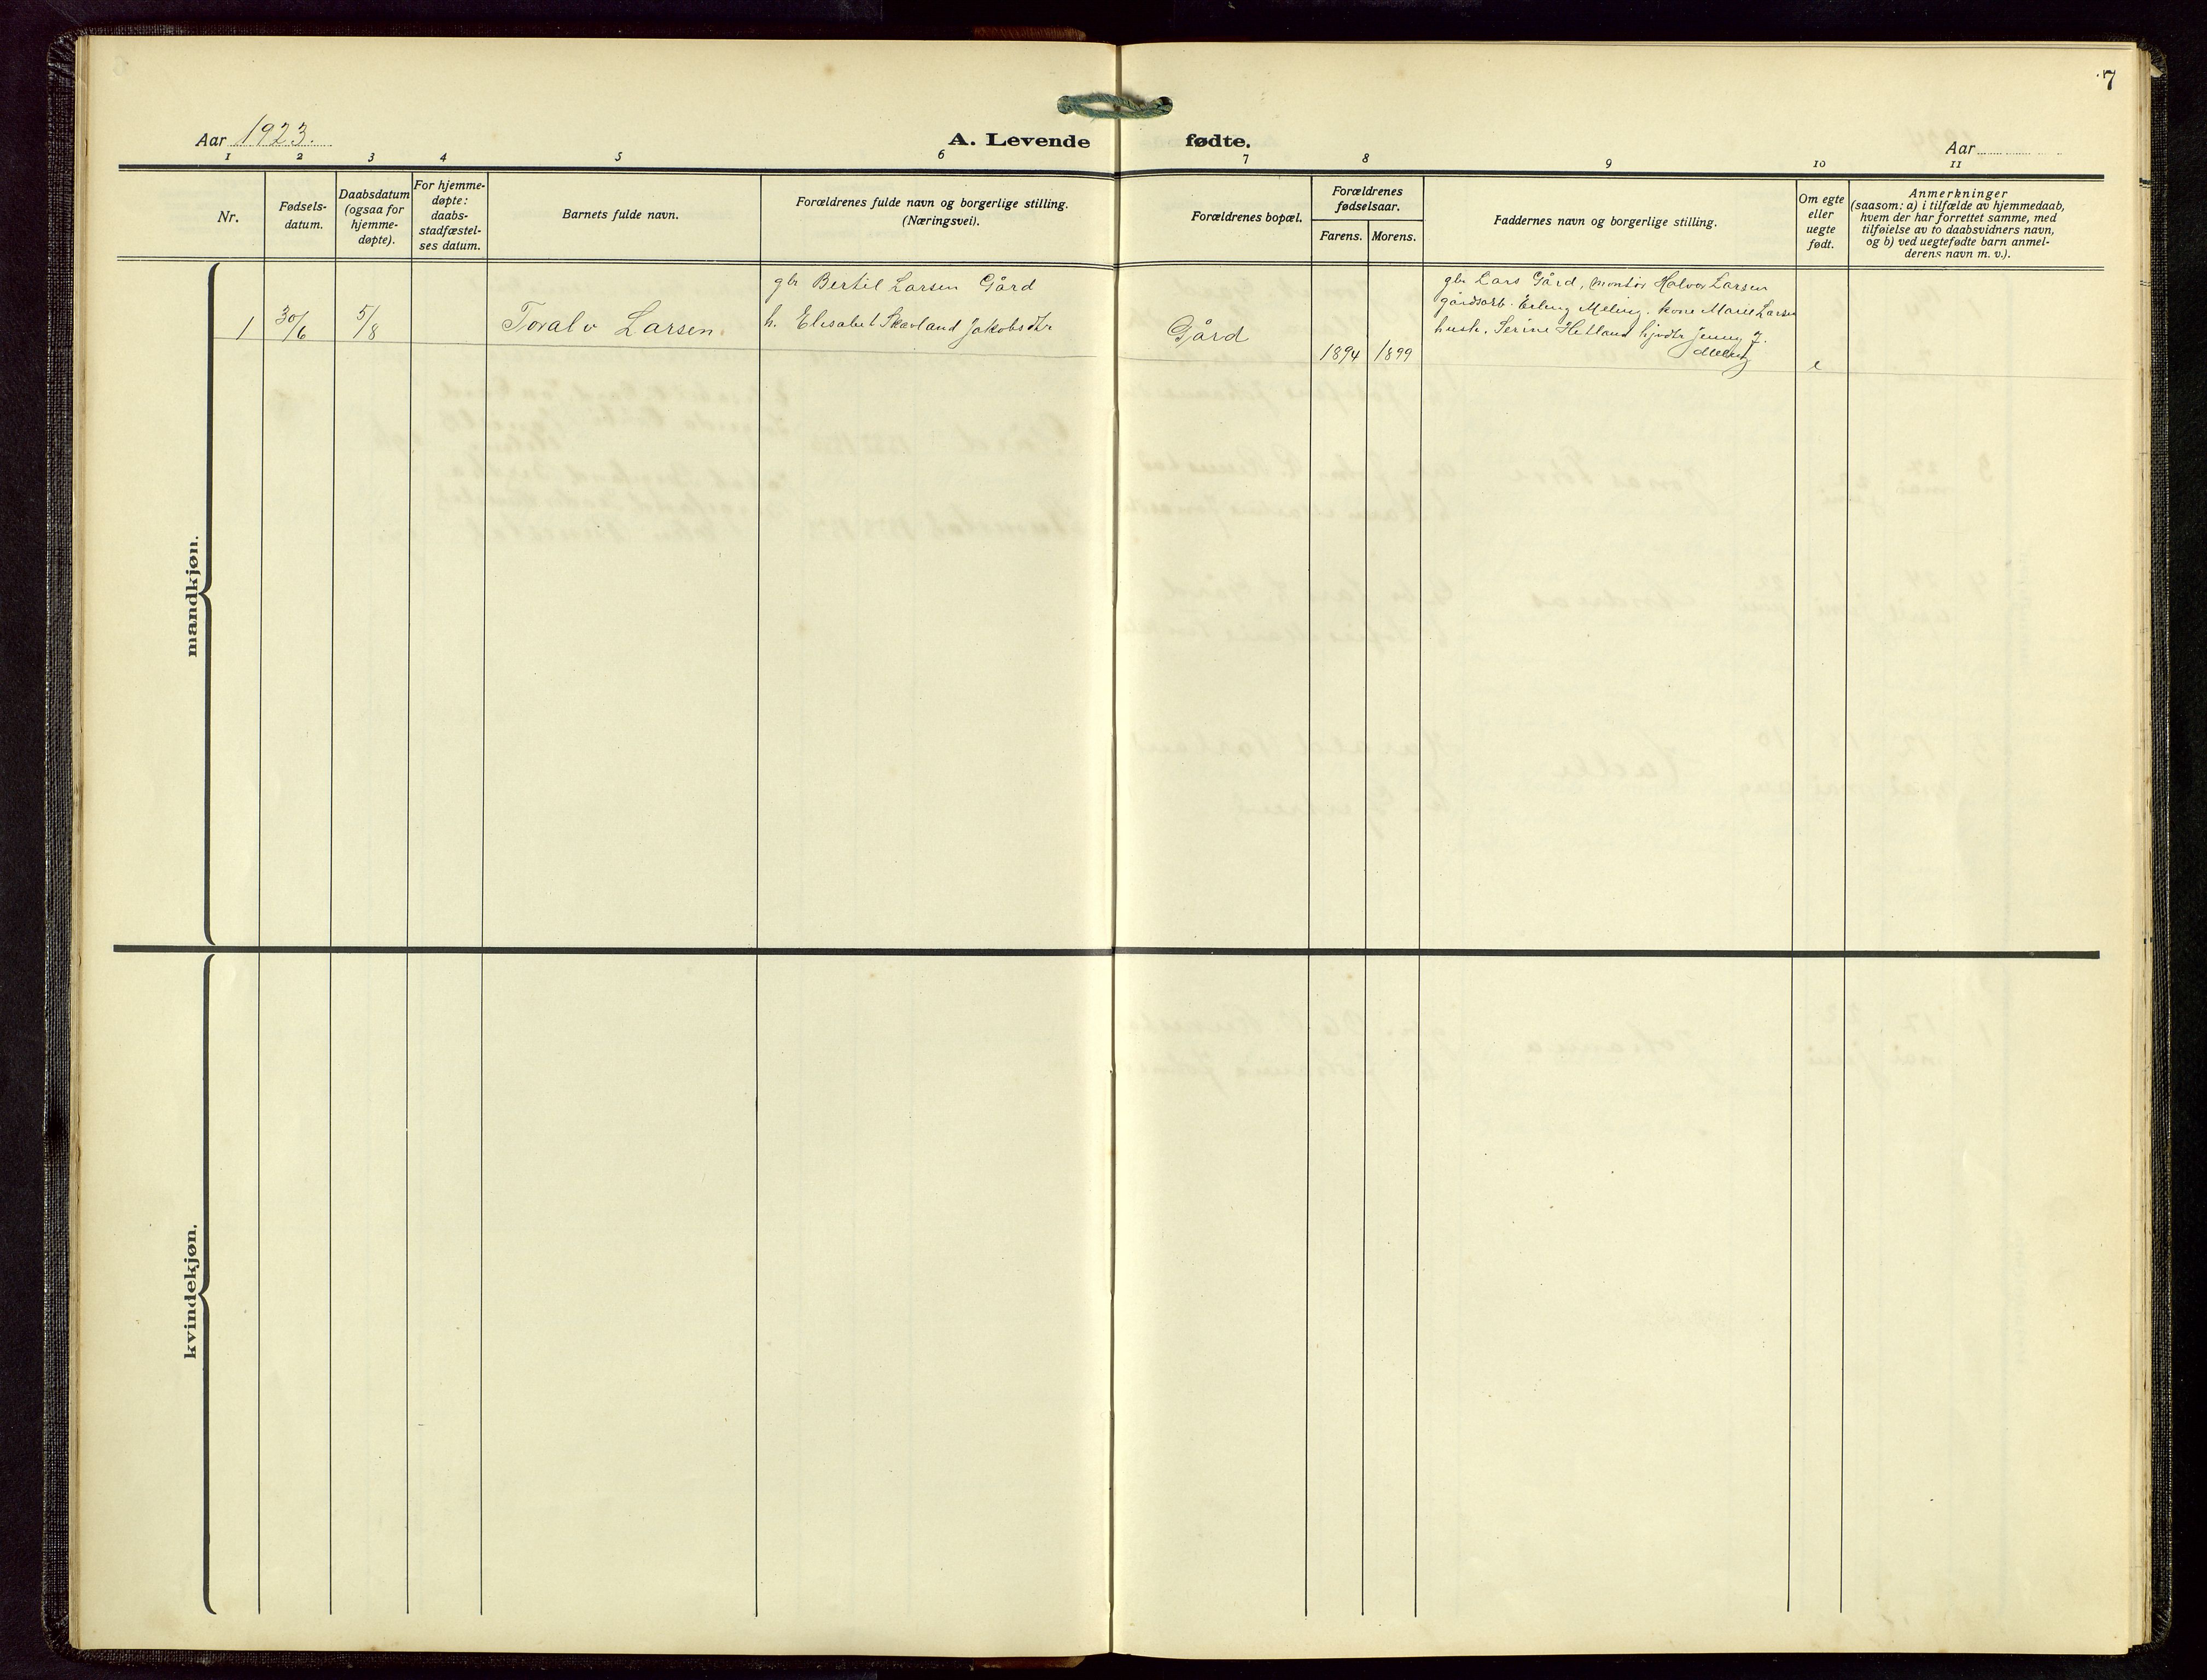 7
Aar 1923.
A. Levende fødte.
Aar
1 2 3 4 5 6 7 8 9 10 11
Nr.
Fødsels-
datum.
Daabsdatum
(ogsaa for
hjemme-
døpte).
For hjemme-
døpte:
daabs-
stadfæstel-
ses datum.
Barnets fulde navn.
Forældrenes fulde navn og borgerlige stilling.
(Næringsvei).
Forældrenes bopæl.
Forældrenes
fødselsaar.
Farens. Morens.
Faddernes navn og borgerlige stilling.
Om egte
eller
uegte
født.
Anmerkninger
(saasom: a) i tilfælde av hjemmedaab,
hvem der har forrettet samme, med
tilføielse av to daabsvidners navn,
og b) ved uegtefødte barn anmel-
derens navn m. v.).
mandkjøn.
1
30/6
5/8
Toralv Larsen.
gbr Bertil Larsen Gård
h. Elisabet Skavland Jakobsdtr
Gård
1894
1899
gbr Lars Gård, montør Halvor Larsen
gårdsarb. Erling Meling. kone Marie Larsen
hush. Serine Hetland Jenny J.
Meling
e
kvindekjøn.